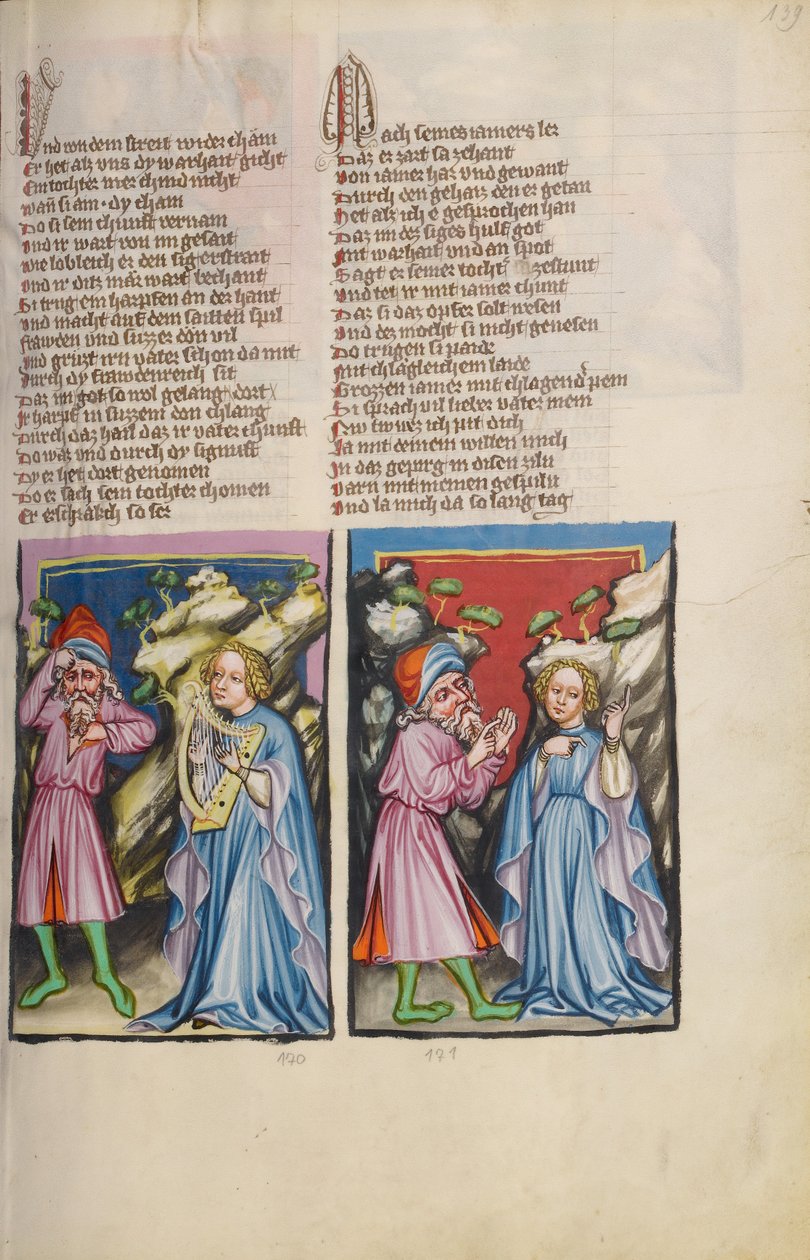 139
Und von dem streit wider cham
Er het als uns dy warhait gicht
Ein tochter mer chind nicht
wan si am · dy cham
Do si sein chunft vernam
Und ir wart von im gesait
wie lobleich er den sig erstrait
Und ir ditz mär wart bechant
Si trug ein harpfen an der hant
Und macht auf dem saitten spil
frawden und suzzer dön vil
Und gruzt irn vater schon da mit
Durch dy frawdenreich sit
Daz im got so wol gelang dort
Ir harpf in suzzem don chlang
Durch daz hail daz ir vater chunft
Do waz und durch dy signuft
Dy er het dort genomen
Do er sach sein tochter chomen
Er erschrakch so ser
Nach seines iamers ler
Daz er zart sa zehant
Von iamer har und gewant
Durch den gehaiz den er getan
Het alz ich e gesprochen han
Daz im dez siges hulf got
Mit warhait und an spot
Sagt er seiner tochter zestunt
Und tet ir mit iamer chunt
Daz si daz opfer solt wesen
Und dez mocht si nicht genesen
Do trugen si paide
Mit chlagleichem laide
Grozzen iamer mit chlagender pein
Si sprach vil lieber vater mein
Nw twez ich pit dich
La mit deinem willen mich
In daz gepirg in disen ziln
Varn mit meinen gespiln
Und la mich da so lang tag
170
171